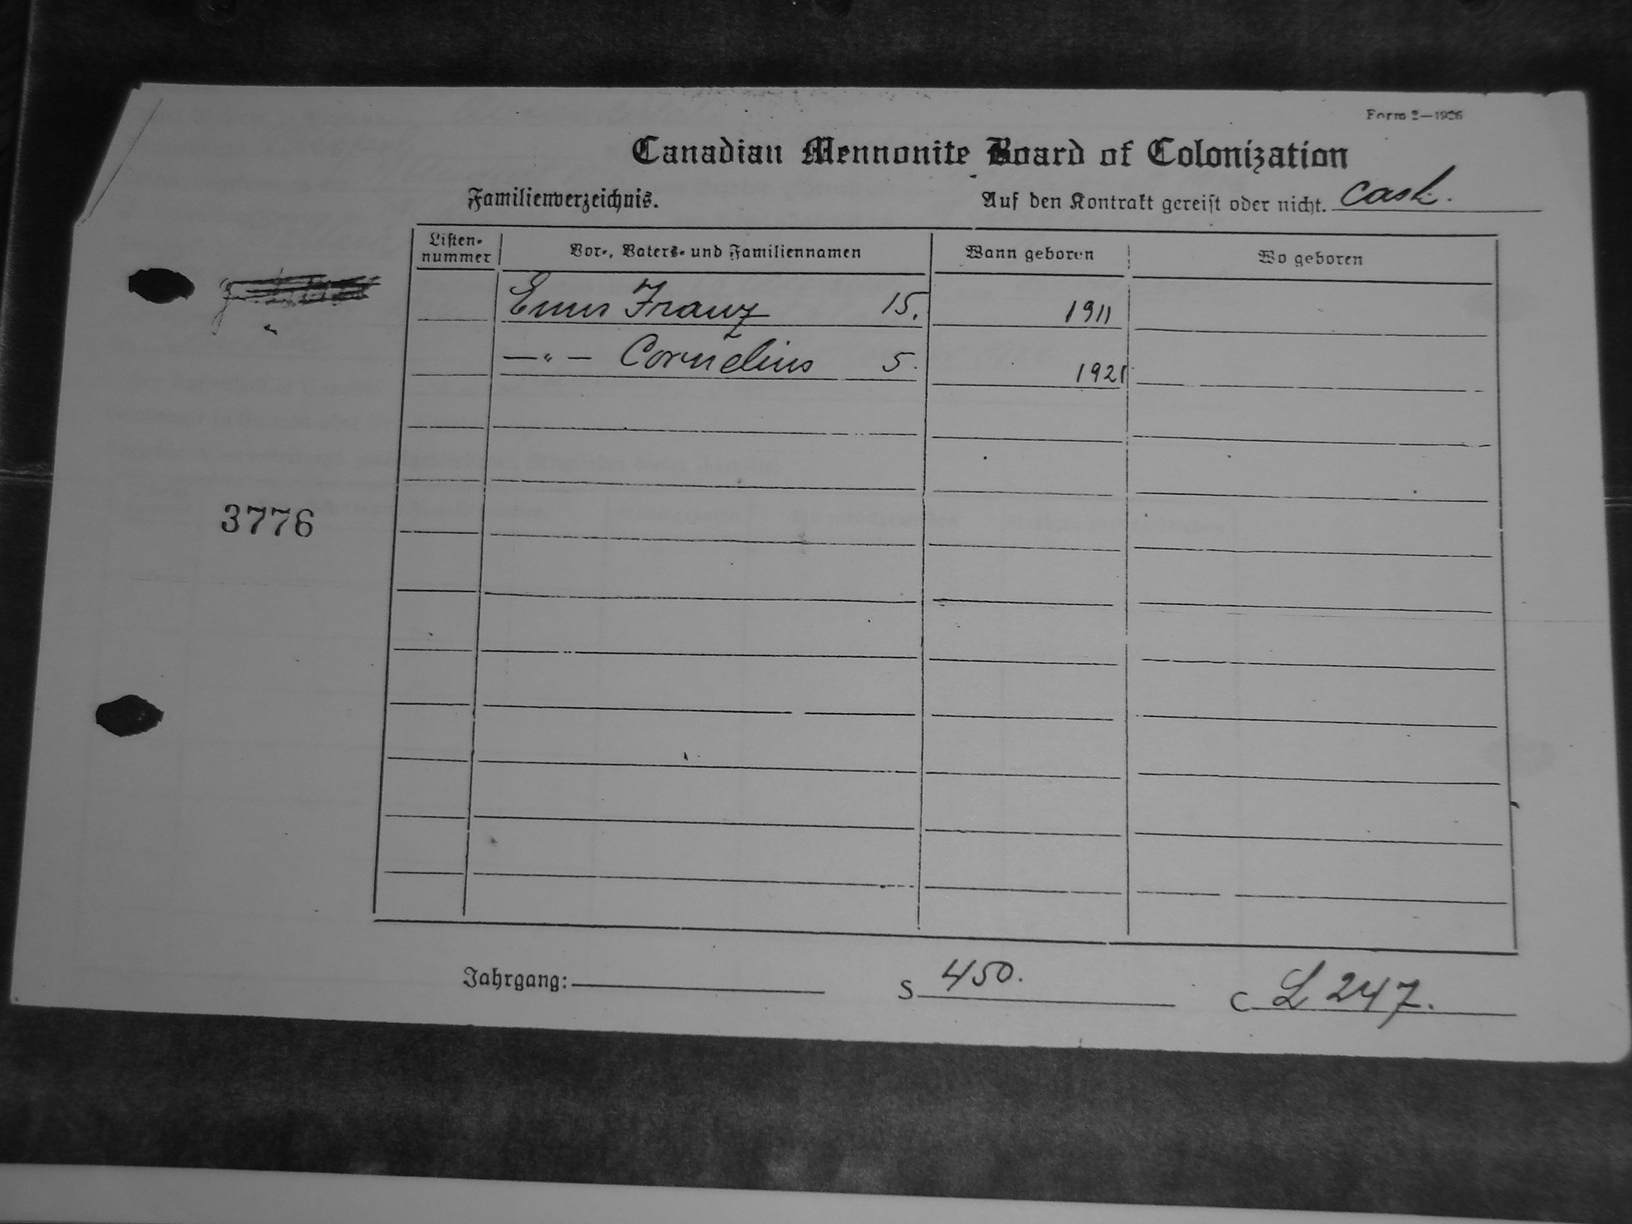 Form 2—1926
Canadian Mennonite Board of Colonization
Familienverzeichnis.
Auf den Kontrakt gereist oder nicht. Cash.
Listen-nummer
Vor-, Vaters- und Familiennamen
Wann geboren
Wo geboren
Enns Franz 15. 1911
—"— Cornelius 5. 1921
3776
Jahrgang:
S 450.
C L 247.